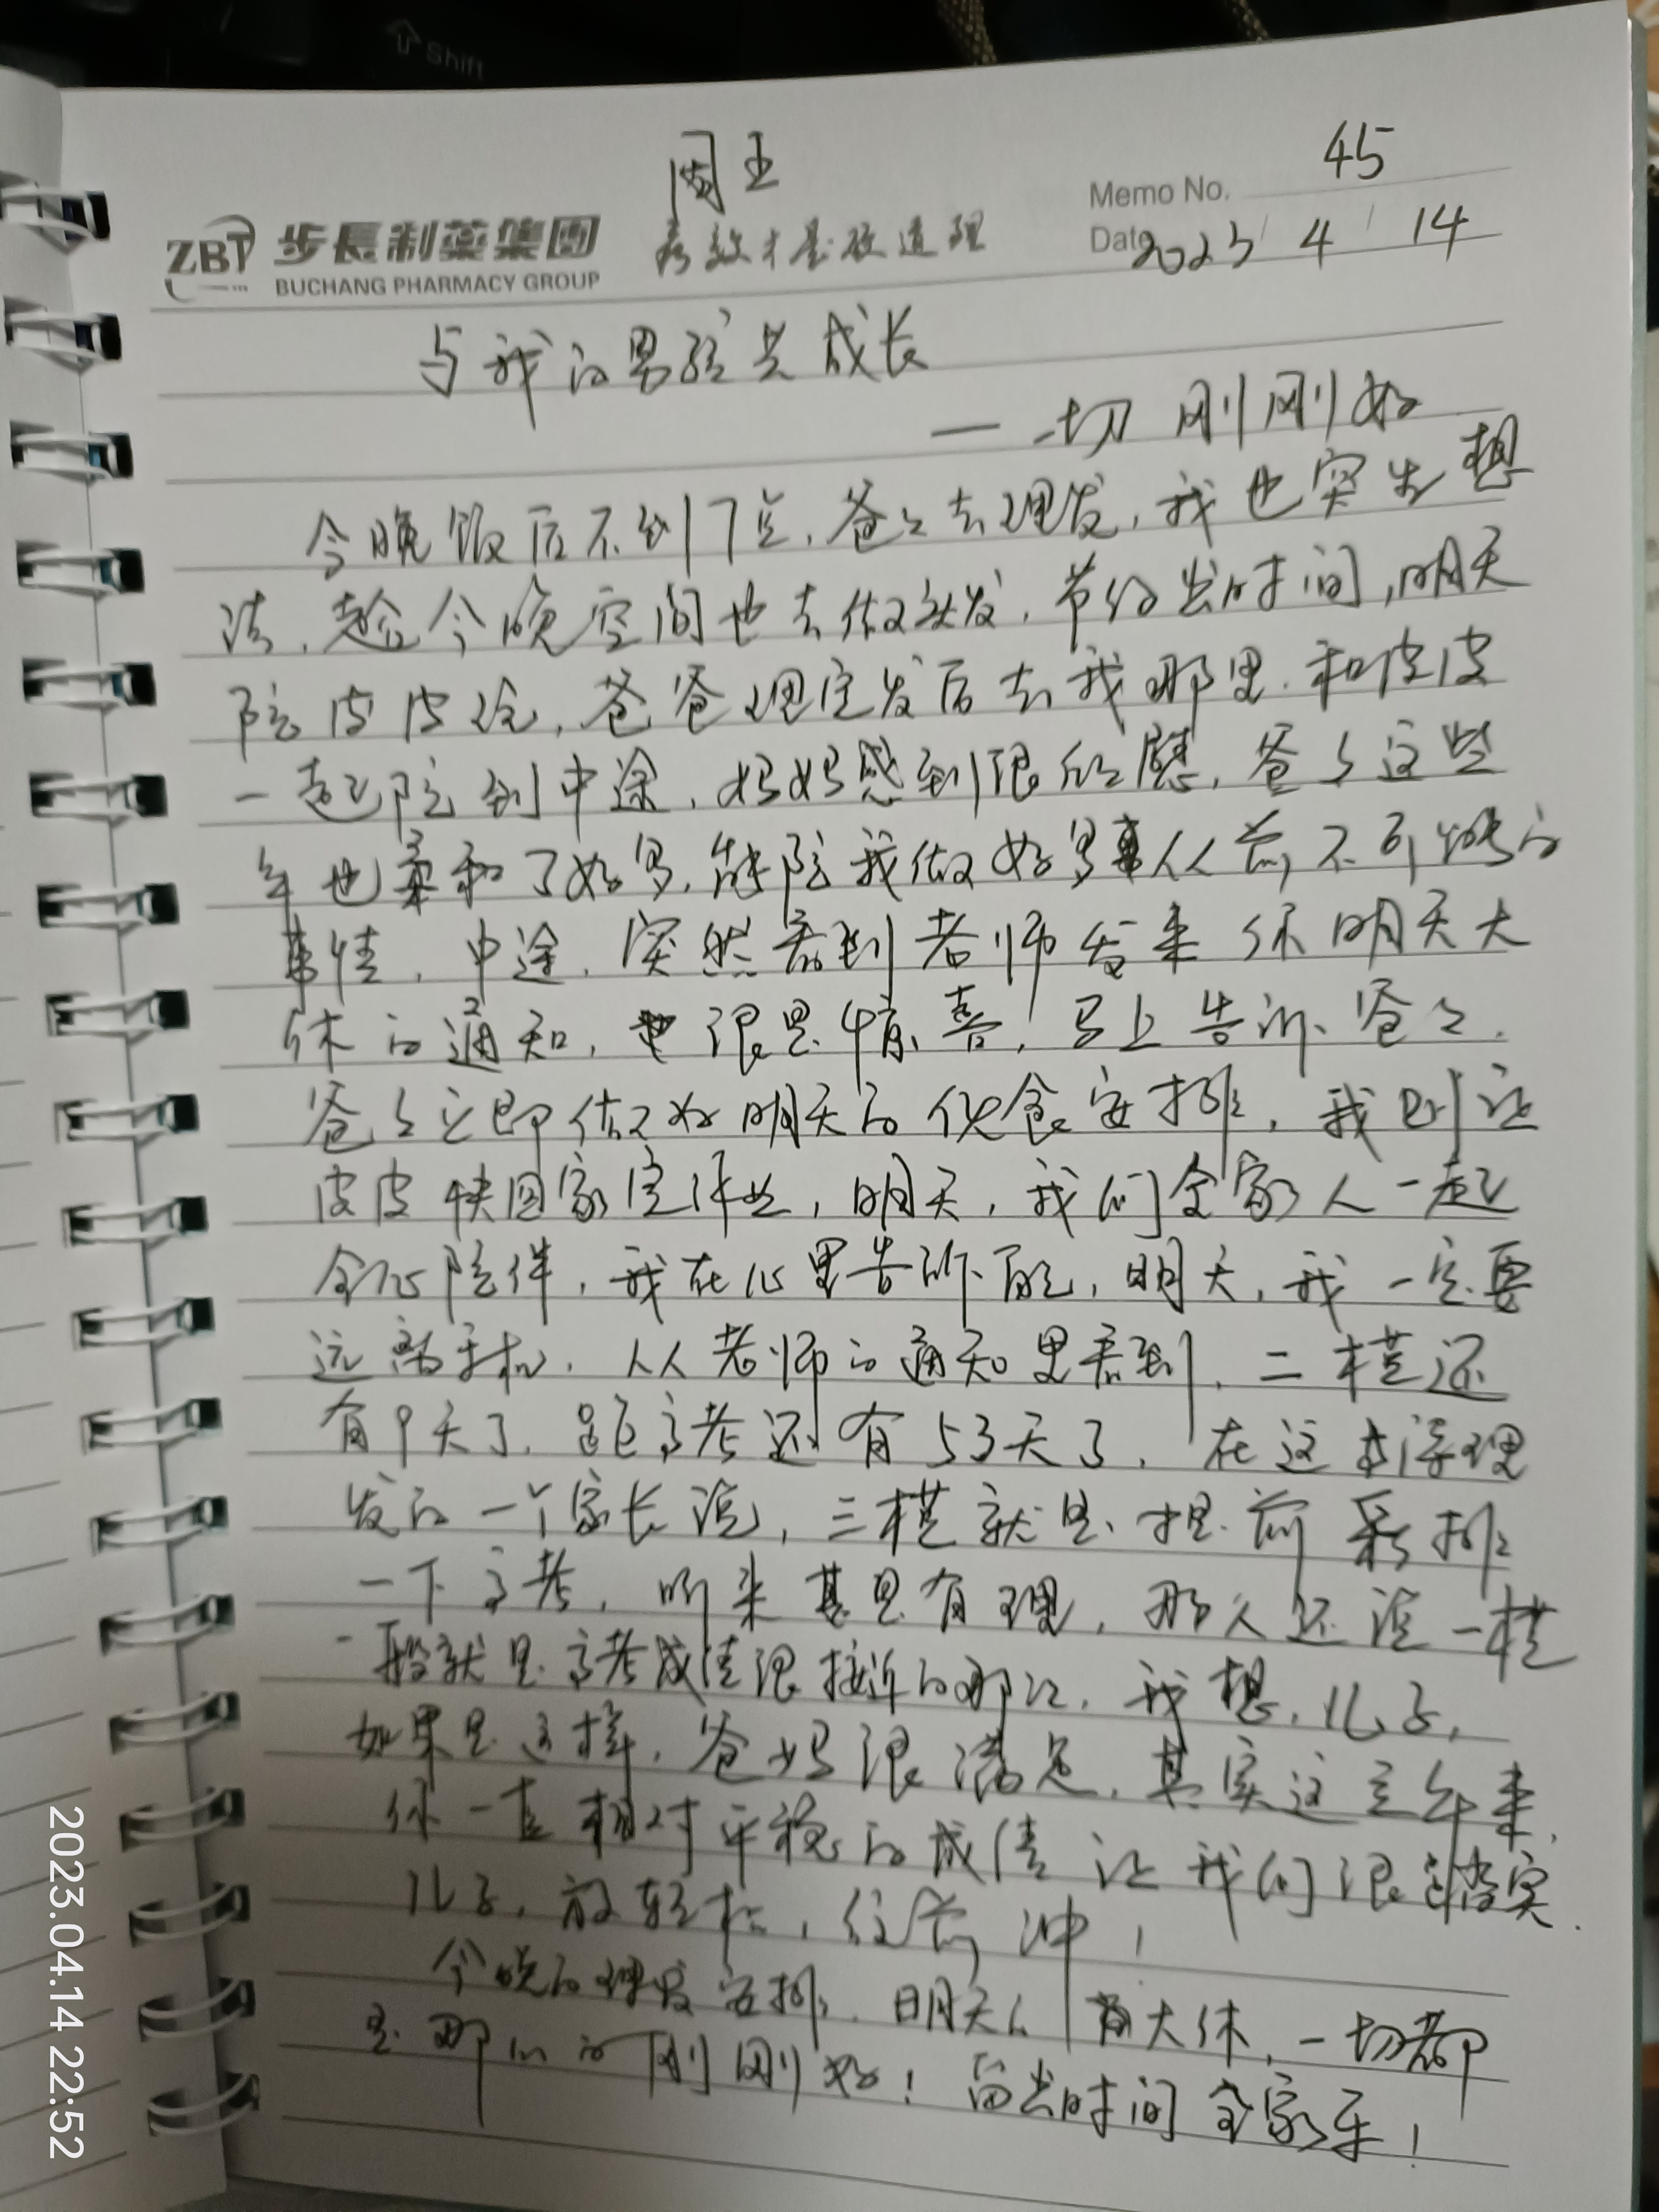 Shift
周五
45
Memo No.
ZBT 步長制药集团
疗效才是硬道理
Date 2023 / 4 / 14
BUCHANG PHARMACY GROUP
与我的男孩共成长
— 一切刚刚好
今晚饭后不到7点,爸爸去理发,我也突发想
法,趁今晚空间也去做头发,节约出时间,明天
陪皮皮玩,爸爸理完发后去我那里,和皮皮
一起陪到中途,妈妈感到很欣慰,爸爸这些
年也柔和了好多,能陪我做好多事从前不可能的
事情,中途,突然看到老师发来你明天大
休的通知,也很是惊喜!马上告诉爸爸.
爸爸立即做好明天的伙食安排,我则让
皮皮快回家完作业,明天,我们全家人一起
全心陪伴,我在心里告诉自己,明天,我一定要
远离手机.从老师的通知里看到,二模还
有9天了.距高考还有53天了,在这本浮理
发的一个家长说,三模就是提前彩排
一下高考,听来甚是有理,那人还说一模
一般就是高考成绩很接近的那次,我想,儿子,
如果是这样,爸妈很满足,其实这三年来,
你一直相对平稳的成绩让我们很踏实.
儿子,放轻松,往前冲!
今晚的理发安排,明天的大休,一切都
是那么的刚刚好!留出时间全家乐!
2023.04.14 22:52